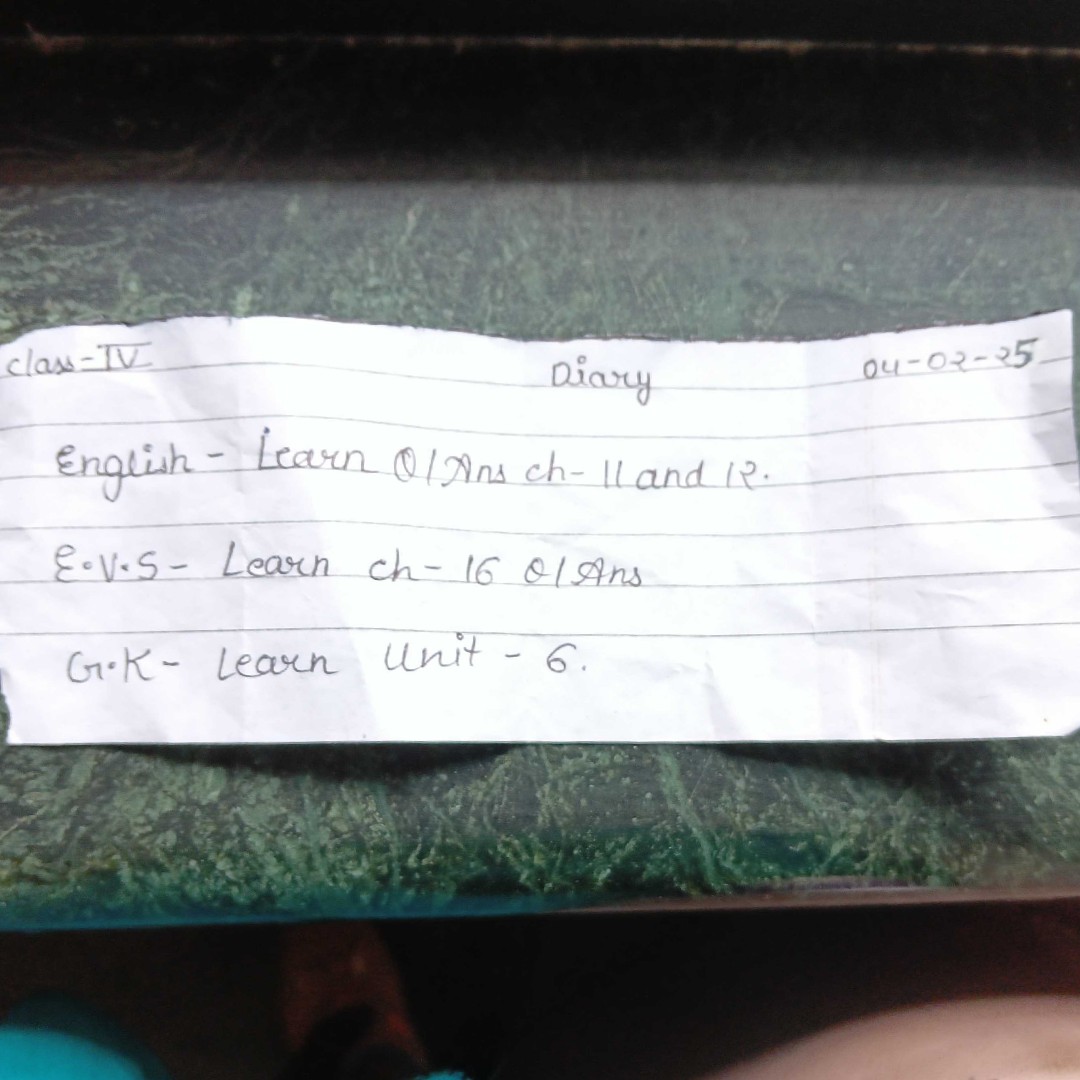 class-IV Diary 04-02-25
English - Learn Q/Ans ch-11 and 12.
E.V.S- Learn ch-16 Q/Ans
G.K- Learn Unit-6.